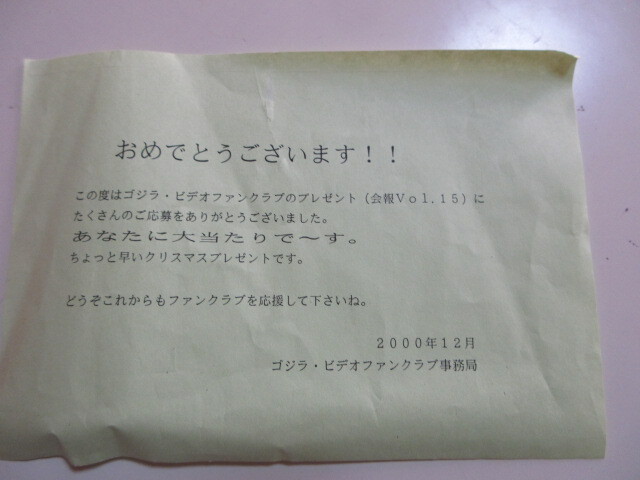 おめでとうございます！！
この度はゴジラ・ビデオファンクラブのプレゼント（会報Ｖｏｌ．１５）に
たくさんのご応募をありがとうございました。
あなたに大当たりで～す。
ちょっと早いクリスマスプレゼントです。
どうぞこれからもファンクラブを応援して下さいね。
２０００年１２月
ゴジラ・ビデオファンクラブ事務局